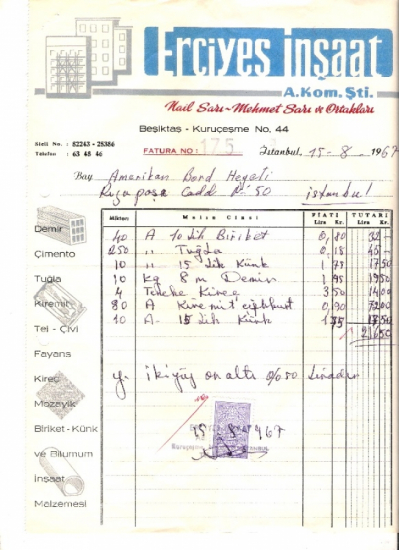 Erciyes İnşaat
A. Kom. Şti.
Nail Sarı - Mehmet Sarı ve Ortakları
Beşiktaş - Kuruçeşme No. 44
Sicil No. : 82243 - 25386
Telefon : 63 45 46
FATURA NO : 175
İstanbul, 15-8-1967
Bay Amerikan Bord Heyeti
Rızapaşa Cadd No 50 istanbul
Miktarı Malın Cinsi FİATI TUTARI
Lira Kr. Lira Kr.
40 A 10 luk Biriket 0,80 32 -
250 " Tuğla 0,18 45 -
10 " 15 lik Künk 1 75 17 50
10 Kg 8 m Demir 1 95 19 50
4 Teneke Kireç 3 50 14 00
80 A Kiremit 0,90 72 00
10 A - 15 lik Künk 1 75 17 50
216 50
y. iki yüz on altı 0/050 liradır
Demir
Çimento
Tuğla
Kiremit
Tel - Çivi
Fayans
Kireç
Mozayik
Biriket - Künk
ve Bilumum
İnşaat
Malzemesi
15 8 967